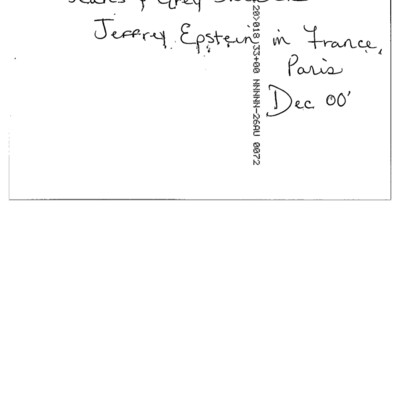 & Grey
Jeffrey Epstein in France,
Paris
Dec 00'
20>018 33+00 NNNNN-26AU 0072